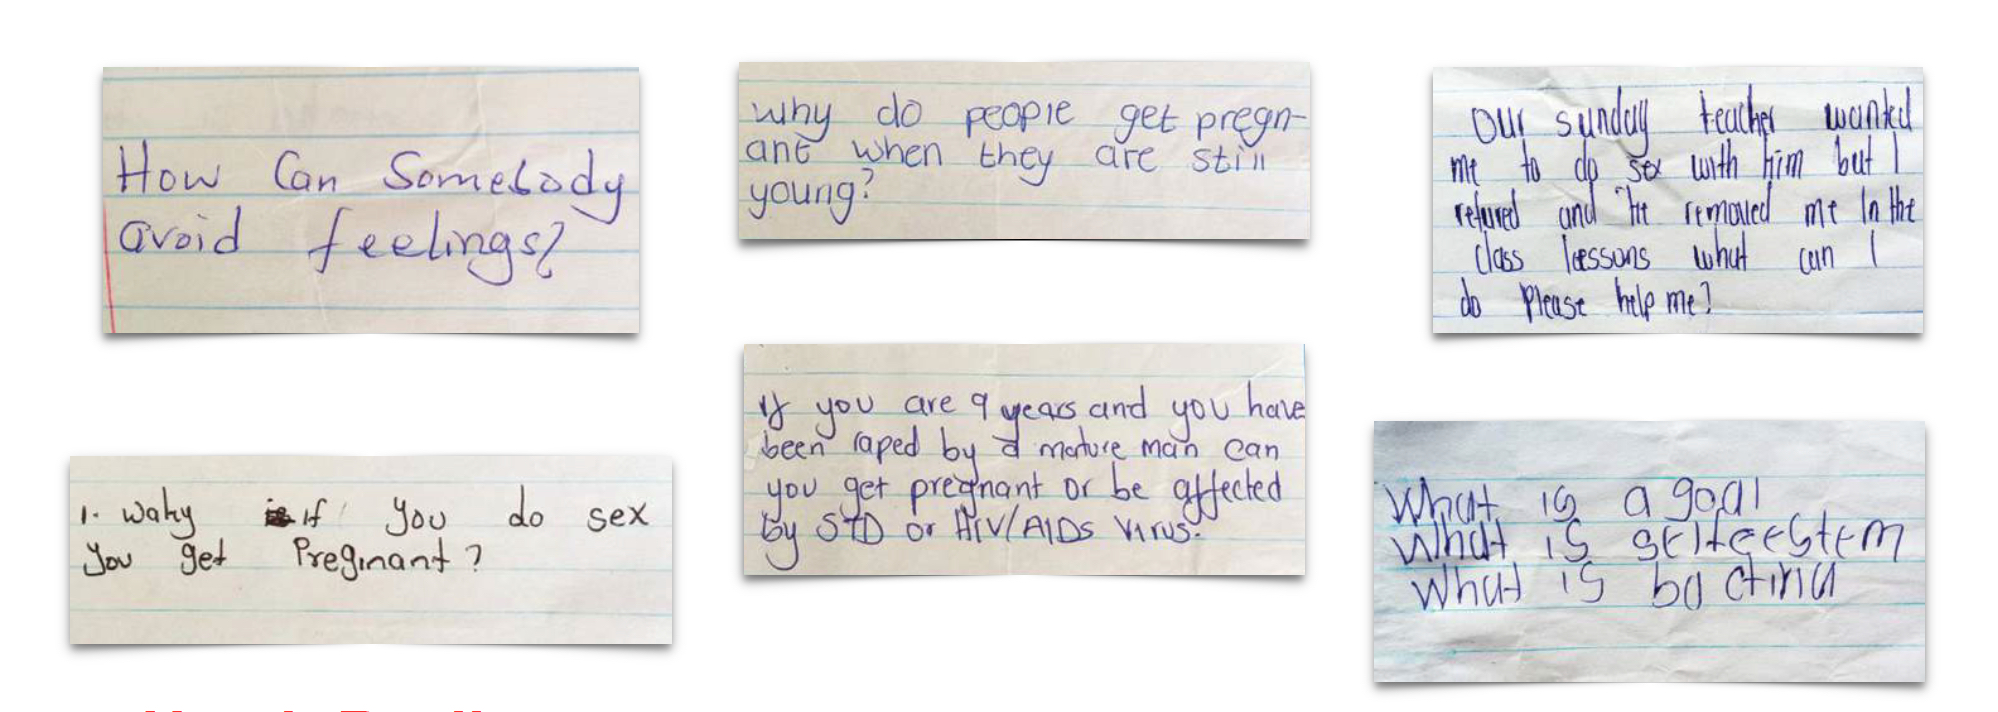 How Can Somebody
avoid feelings?
why do people get pregn-
ant when they are still
young?
Our sunday teacher wanted
me to do sex with him but I
refused and he removed me In the
class lessons what can I
do please help me?
1. wahy if you do sex
You get Preginant?
If you are 9 years and you have
been raped by a mature man can
you get pregnant or be affected
by STD or HIV/AIDs Virus.
What is a goal
What is selfeestem
What is